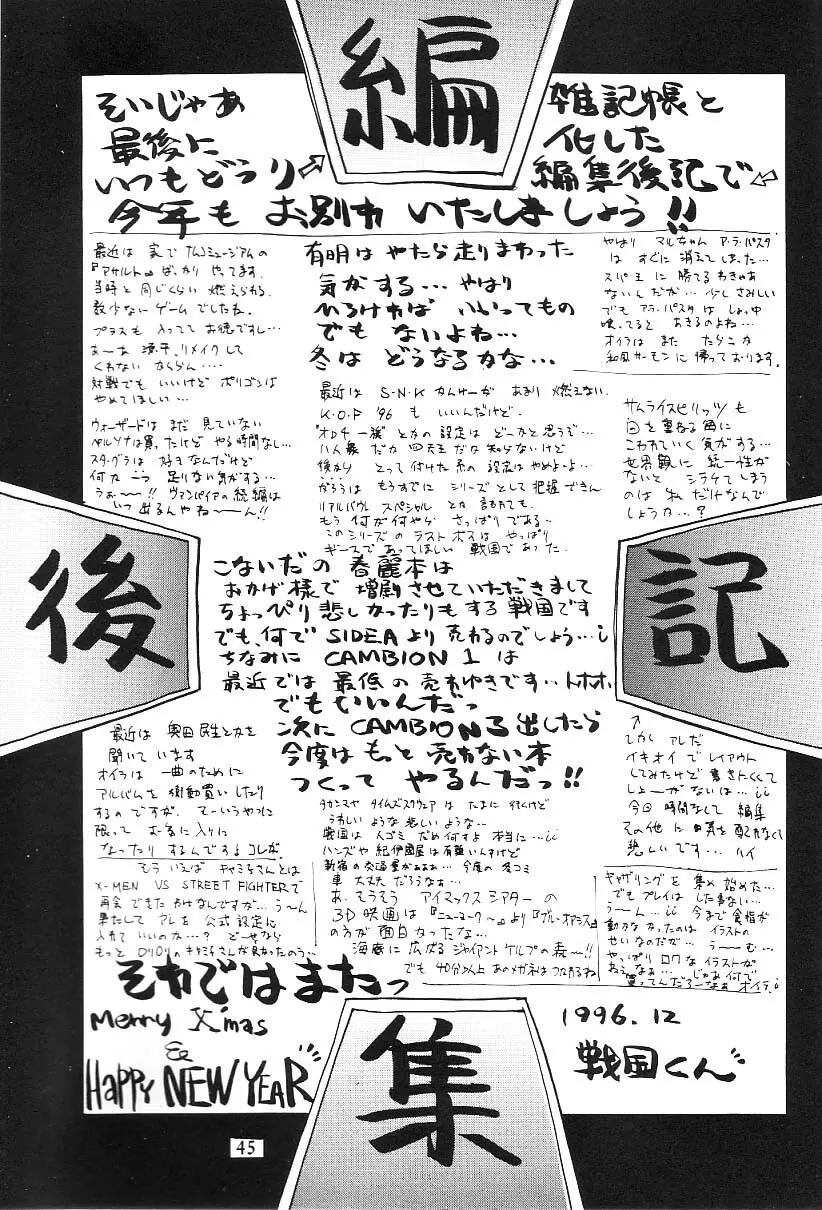 編集後記
そいじゃあ
最後に
いつもどうり⇨
雑記帳と
化した
編集後記で⇦
今年も お別れ いたしましょう!!
最近は 家で ナムコミュージアムの
『アサルト』ばっかり やってます。
当時と 同じくらい 燃えられる
数少ないゲームでしたね。
プラスも 入ってて お徳ですし…
あーあ 源平、リメイクして
くれない ならん…
対戦でも いいけど ポリゴンは
やめてほしい…
有明は やたら走りまわった
気がする… やはり
ひろければ いいってもの
でも ないよね…
冬は どうなるかな…
やはり マルちゃん ア・ラ・パスタ
は すぐに 消えてしまった…
スパ王 に 勝てるわきゃあ
ないんだが… 少しさみしい
でも アラ・パスタは しょっ中
喰ってると あきるのよね…
オイラは また たらこか
和風サーモンに 帰っております。
ウォーザードは まだ 見ていない
ペルソナは買ったけど やる時間なし…
スタ・グラは 好きなんだけど
何か一つ 足りない気がする…
うぉ〜〜!! ヴァンパイアの続編は
いつ 出るんやね〜〜ん!!
最近は S・N・K かんけーが あまり 燃えない
K.O.F '96 も いいんだけど.
"オロチ一族" とかの設定は どーかと思うぞ…
八人衆 だか 四天王 だか知らないけど
後から とって付けた系の 設定は やめよーよ…
がろうは もうすでに シリーズとして 把握できん
リアルバウト スペシャル とか 言われても.
もう 何が何やら さっぱりである〜
このシリーズの ラスト ボスは やっぱり
ギースであってほしい 戦国であった.
サムライスピリッツ も
回を 重ねる毎に
こわれていく 気がする…
世界観に 統一性が
ないと シラケてしまう
のは 私だけなんで
しょうか…?
こないだの 春麗本は
おかげ様で 増刷させていただきまして
ちょっぴり悲しかったりもする 戦国です
でも、何で SIDEA より 売れるのでしょう…
ちなみに CAMBION 1 は
最近では 最低の売れゆきです‥トホホ.
でもいいんだっ
次に CAMBION 3 出したら
今度は もっと 売れない本
つくって やるんだっ!!
最近は 奥田民生とかを
聞いています
オイラは 一曲のために
アルバムを 衝動買い したり
するの ですが、 てーいうやつに
限って お気に入りに
なったり するんですよコレが.
↑
しかし アレだ
イキオイで レイアウト
してみたけど 書きにくくて
しょーがないは…
今回 時間なくて 編集
その他に 口気を 配れなくて
悲しいです… ハイ
タカシマヤ タイムズスクウェアは たまに 行くけど
うれしいような 悲しいような‥
戦国は 人ゴミ だめ何すよ 本当に…
ハンズや 紀伊國屋は 有難いんすけど
新宿の交通量があああ… 今度の 冬コミ
車 大丈夫 だろうなぁ…
あ、そうそう アイマックス シアター の
3D映画は 『ニューヨーク〜』より『ブルー・オアシス』
の方が 面白かったな…
海底に 広がる ジャイアント ケルプの 森〜!!
でも 40分以上 あのメガネは つかれるね
そう いえば キャミィさんとは
X-MEN VS STREET FIGHTERで
再会できた わけなしですが… う〜ん
果たして アレを 公式設定に
入れていいのか…? どーせなら
もっと ロリロリの キャミィさんが 良かったのう…
ギャザリング を 集め 始めた…
でもプレイは した事ない…
う〜ん… 今まで食指が
動かなかったのは イラストの
せいなのだが… う〜む…
やっぱり ロクな イラストが
ねぇなぁ… じゃあ何で
買ってんだろーなぁ オイラ
それではまたっ
Merry X'mas
&
HAPPY NEW YEAR
1996.12
戦国くん
45